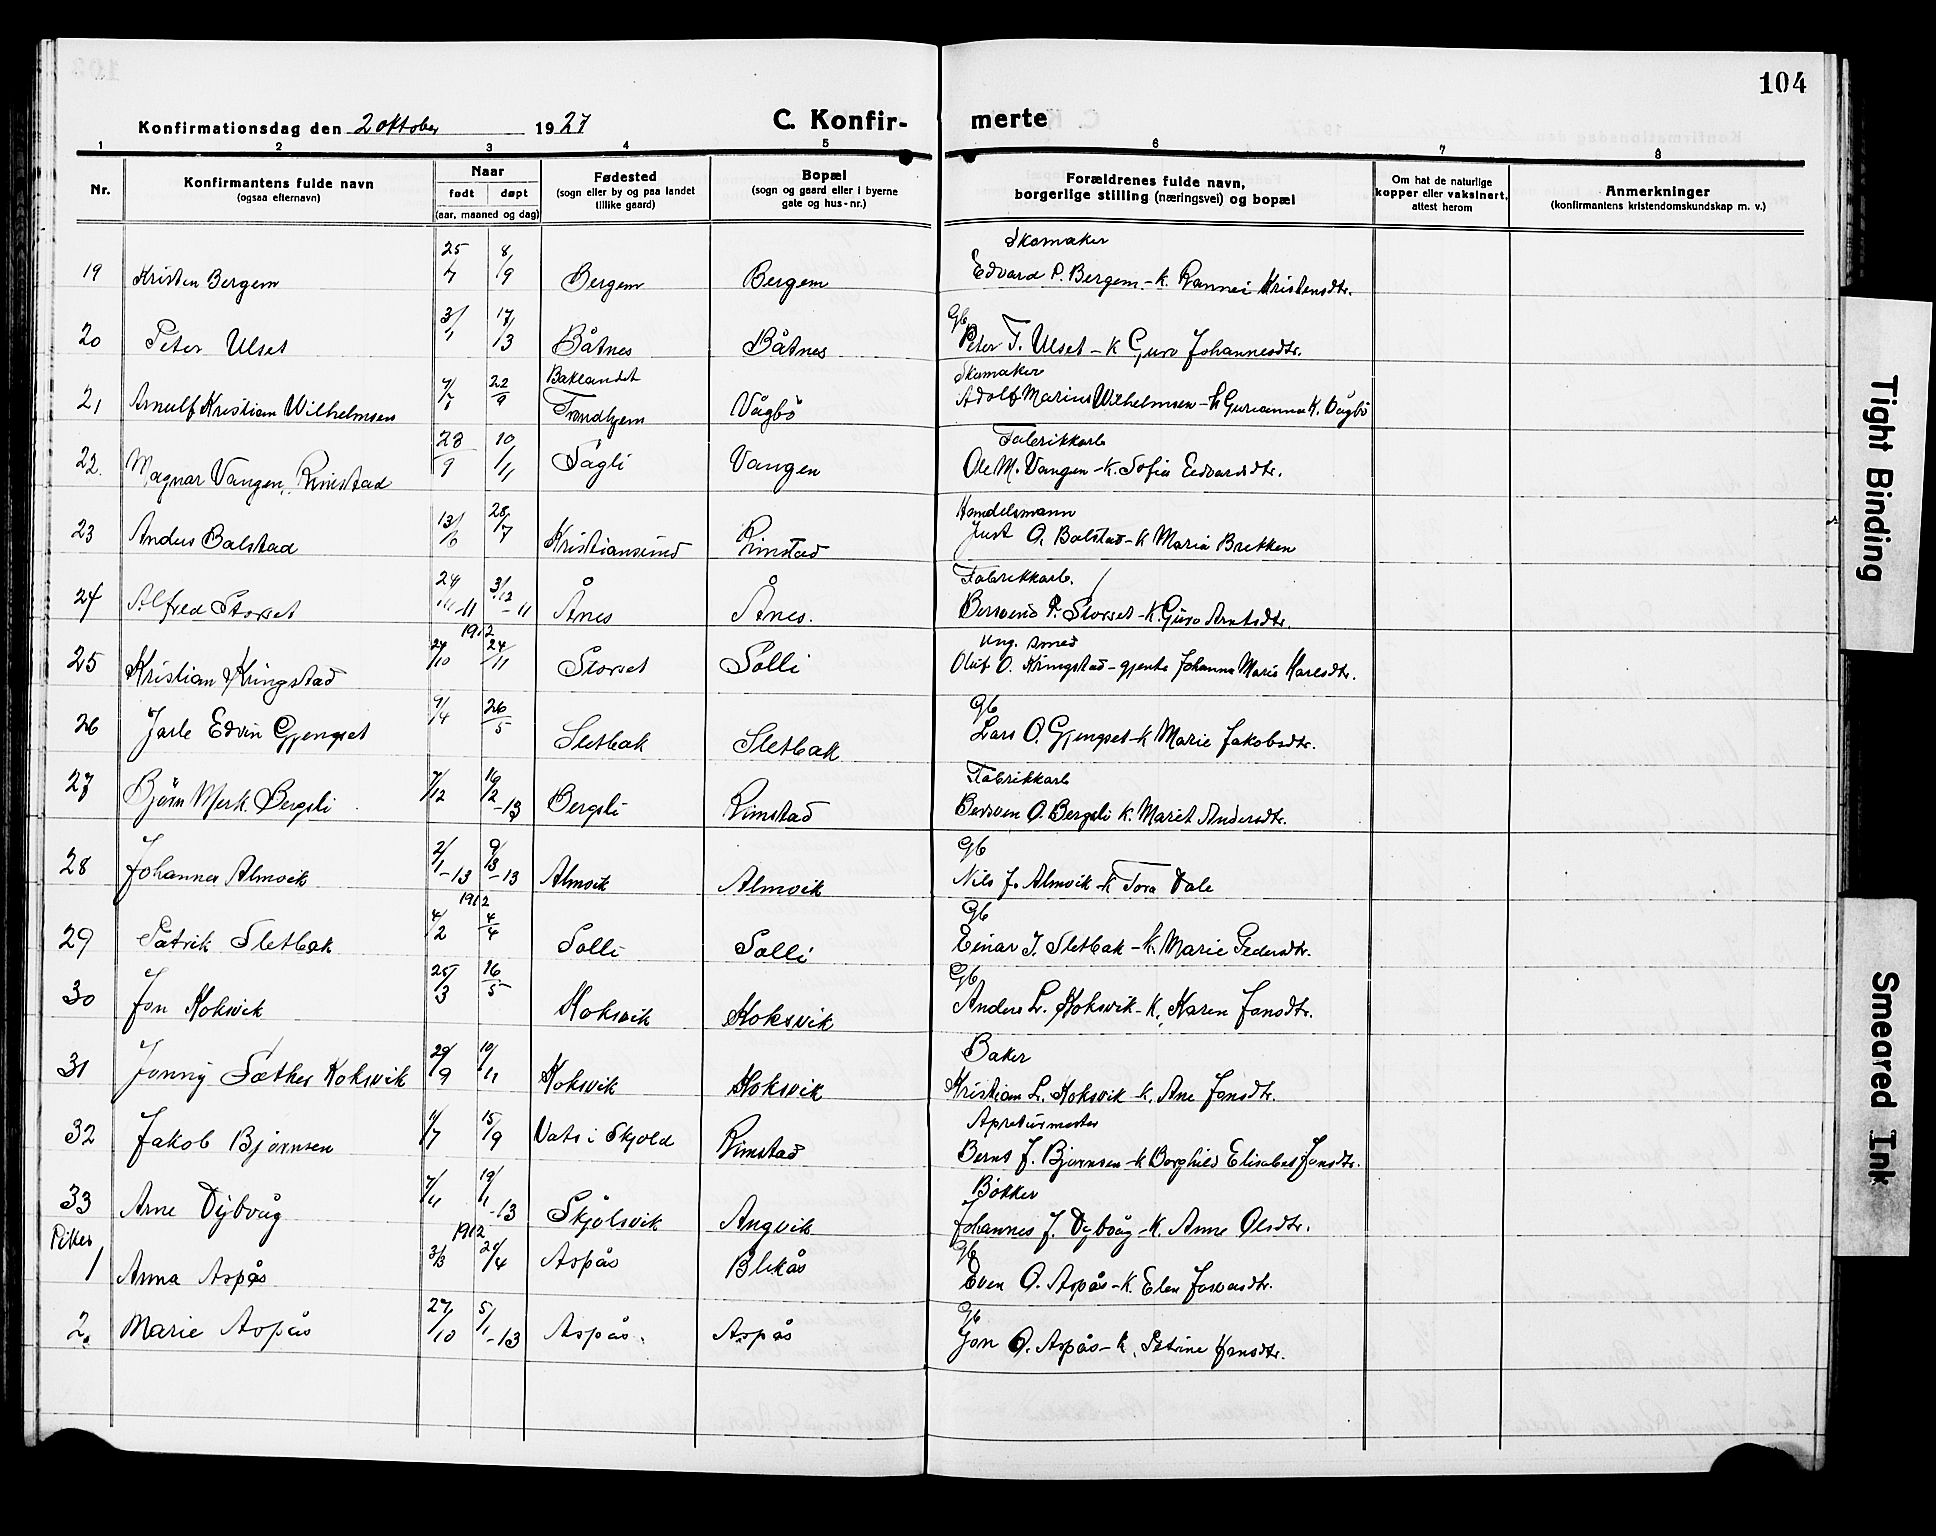 104
Konfirmationsdag den 2 oktober 1927 C. Konfir- merte
1 2 3 4 5 6 7 8
Nr. Konfirmantens fulde navn (ogsaa efternavn) Naar født døpt (aar, maaned og dag) Fødested (sogn eller by og paa landet tillike gaard) Bopæl (sogn og gaard eller i byerne gate og hus-nr.) Forældrenes fulde navn, borgerlige stilling (næringsvei) og bopæl Om hat de naturlige kopper eller vaksinert, attest herom Anmerkninger (konfirmantens kristendomskundskap m. v.)
Skomaker
19 Kristen Bergem 25/7 8/9 Bergem Bergem Edvard P. Bergem - k. Rannei Kristensdtr.
Gb
20 Peter Ulset 17/13 Båtnes Båtnes Peter T. Ulset - k Guro Johannesdtr.
Baklandet Skomaker
21 Arnulf Kristian Wilhelmsen 22/9 Trondhjem Vågbö Adolf Marius Wilhelmsen - k Gurianna K. Vågbö
Fabrikkarb
22. Magnar Vangen, Rimstad 23/9 10/11 Sagli Vangen Ole M. Vangen - k. Sofia Edvardsdtr.
Handelsmann
23 Anders Bolstad 13/6 28/7 Kristiansund Rimstad Just O. Bolstad - k Maria Brekken
Fabrikkarb.
24 Alfred Storset 24/11-11 3/12-11 Ånes Ånes. Bersvend P. Storset - k. Guro Arntsdtr.
1912 Ung. smed
25 Kristian Kringstad 27/10 24/11 Storset Solli Oluf O. Kringstad - gjente Johanna Marie Karlsdtr.
Gb
26 Jarle Edvin Gjengset 9/4 26/5 Sletbak Sletbak Lars O. Gjengset - k Marie Jakobsdtr.
Fabrikkarb
27 Björn Merk. Bergsli 7/12 16/2-13 Bergsli Rimstad Bersven O. Bergsli k. Marit Andersdtr.
Gb
28 Johannes Almvik 2/1-13 9/3-13 Almvik Almvik Nils J. Almvik - k Tora Dale
1912 Gb
29 Patrik Sletbak 4/2 4/4 Solli Solli Einar J. Sletbak - k. Marie Pedersdtr.
Gb
30 Jon Koksvik 25/3 16/5 Koksvik Koksvik Anders L. Koksvik - k. Karen Jonsdtr.
Baker
31 Jonny Sæther Koksvik 29/9 10/11 Koksvik Koksvik Kristian L. Koksvik - k. Ane Jonsdtr.
Apreturmester
32 Jakob Bjørnsen 11/7 15/9 Vats i Skjold Rimstad Bernt J. Bjørnsen - k Borghild Elisabet Jonsdtr.
Bøkker
33 Arne Dybvåg 7/11 19/1-13 Skjölsvik Angvik Johannes J. Dybvåg - k. Anne Olsdtr.
Piker 1912 Gb
1 Anna Aspås 3/3 21/4 Aspås Blekås Even O. Aspås - k. Elen Josvasdtr.
Gb
2. Marie Aspås 27/10 5/1-13 Aspås. Aspås Jon O. Aspås - k. Petrine Hansdtr.
Tight Binding
Smeared Ink